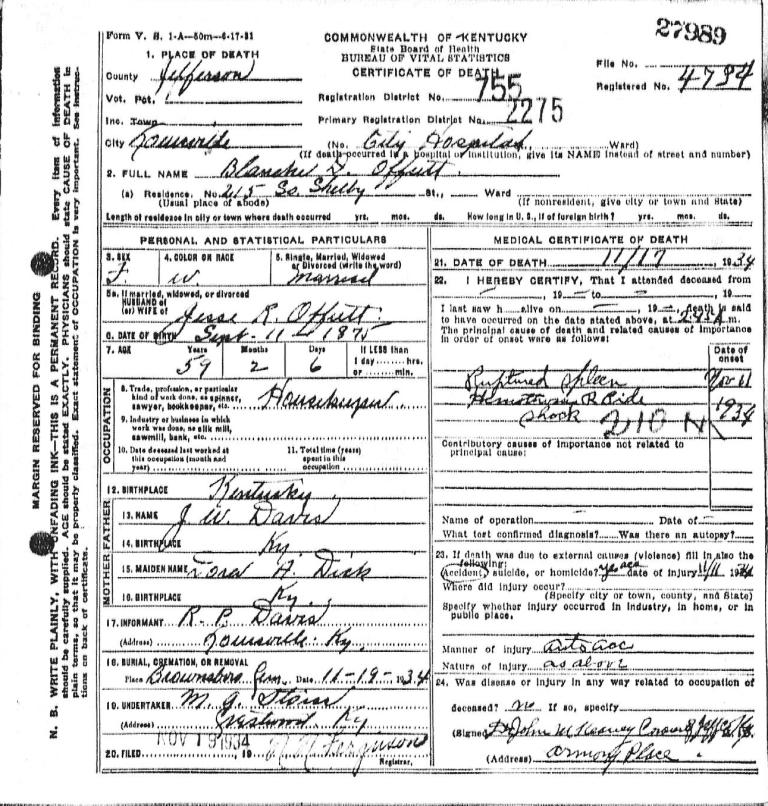 27989
Form V. S. 1-A—50m—6-17-31
COMMONWEALTH OF KENTUCKY
State Board of Health
BUREAU OF VITAL STATISTICS
CERTIFICATE OF DEATH
File No.
Registered No. 4794
1. PLACE OF DEATH
County Jefferson
Vot. Pct.
Inc. Town
City Louisville
Registration District No. 755
Primary Registration District No. 2275
(No. City Hospital, Ward)
(If death occurred in a hospital or institution, give its NAME instead of street and number)
2. FULL NAME Blanche D. Offutt
(a) Residence. No. 215 So. Shelby St., Ward
(Usual place of abode) (If nonresident, give city or town and State)
Length of residence in city or town where death occurred yrs. mos. ds. How long in U. S., if of foreign birth? yrs. mos. ds.
PERSONAL AND STATISTICAL PARTICULARS
3. SEX F
4. COLOR OR RACE W
5. Single, Married, Widowed or Divorced (write the word) Married
5a. If married, widowed, or divorced
HUSBAND of
(or) WIFE of Jesse R. Offutt
6. DATE OF BIRTH Sept. 11 - 1875
7. AGE Years 59 Months 2 Days 6 If LESS than 1 day ... hrs. or ... min.
OCCUPATION
8. Trade, profession, or particular kind of work done, as spinner, sawyer, bookkeeper, etc. Housekeeper
9. Industry or business in which work was done, as silk mill, sawmill, bank, etc.
10. Date deceased last worked at this occupation (month and year)
11. Total time (years) spent in this occupation
12. BIRTHPLACE Kentucky
FATHER
13. NAME J. W. Davis
14. BIRTHPLACE Ky.
MOTHER
15. MAIDEN NAME A. Dick
16. BIRTHPLACE Ky.
17. INFORMANT R. P. Davis
(Address) Louisville Ky.
18. BURIAL, CREMATION, OR REMOVAL
Place Brownsboro Cem. Date 11-19-1934
19. UNDERTAKER M. A.
(Address) Crestwood Ky
20. FILED NOV 19 1934, 19 Ferguson
Registrar.
MEDICAL CERTIFICATE OF DEATH
21. DATE OF DEATH 11/17, 1934
22. I HEREBY CERTIFY, That I attended deceased from
, 19 — to — , 19
I last saw h alive on , 19 —, death is said
to have occurred on the date stated above, at m.
The principal cause of death and related causes of importance
in order of onset were as follows:
Date of onset
Ruptured Spleen Nov 11
Hemothorax R Side 1934
Shock 210
Contributory causes of importance not related to
principal cause:
Name of operation Date of
What test confirmed diagnosis? Was there an autopsy?
23. If death was due to external causes (violence) fill in also the
following:
Accident, suicide, or homicide? yes acc date of injury 11/11 1934
Where did injury occur?
(Specify city or town, county, and State)
Specify whether injury occurred in industry, in home, or in
public place.
Manner of injury auto acc
Nature of injury as above
24. Was disease or injury in any way related to occupation of
deceased? no If so, specify
(Signed) Dr John M Keaney Coroner
(Address) Armory Place
MARGIN RESERVED FOR BINDING
N. B. WRITE PLAINLY, WITH UNFADING INK—THIS IS A PERMANENT RECORD. Every item of information
should be carefully supplied. AGE should be stated EXACTLY. PHYSICIANS should state CAUSE OF DEATH in
plain terms, so that it may be properly classified. Exact statement of OCCUPATION is very important. See instruc-
tions on back of certificate.